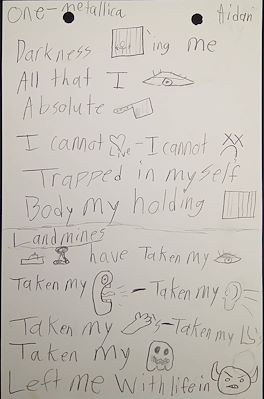 One-metallica Aidan
Darkness 'ing me
All that I
Absolute
I cannot ive - I cannot
Trapped in myself
Body my holding
Landmines
have Taken my
Taken my - Taken my
Taken my - Taken my
Taken my
Left me With life in